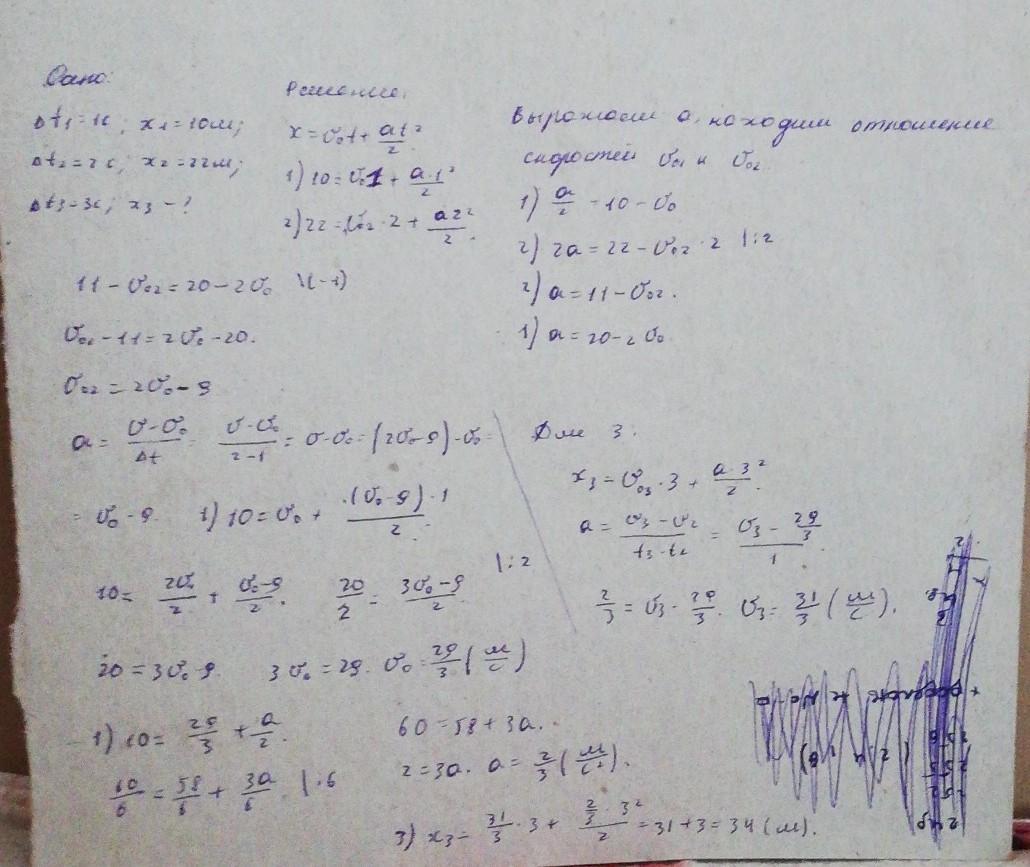 Дано:
Δt₁=1с; x₁=10м;
Δt₂=2с; x₂=22м;
Δt₃=3с; x₃-?
Решение:
x=υ₀t+at²/2
1) 10=υ₀1+a·1²/2
2) 22=υ₀₂·2+a2²/2.
Выражаем a, находим отношение
скоростей υ₀₁ и υ₀₂.
1) a/2=10-υ₀
2) 2a=22-υ₀₂·2 |:2
2) a=11-υ₀₂.
1) a=20-2υ₀
11-υ₀₂=20-2υ₀ \(-1)
υ₀₂-11=2υ₀-20.
υ₀₂=2υ₀-9
a=(υ-υ₀)/Δt=(υ-υ₀)/(2-1)=υ-υ₀=(2υ₀-9)-υ₀=
=υ₀-9. 1) 10=υ₀+(υ₀-9)·1/2.
10=2υ₀/2+(υ₀-9)/2. 20/2=(3υ₀-9)/2 |:2
20=3υ₀-9. 3υ₀=29. υ₀=29/3(м/с)
1) 10=29/3+a/2.
60/6=58/6+3a/6 |·6
60=58+3a.
2=3a. a=2/3(м/с²).
Для 3:
x₃=υ₀₃·3+a·3²/2.
a=(υ₃-υ₂)/(t₃-t₂)=(υ₃-29/3)/1
2/3=υ₃-29/3. υ₃=31/3(м/с).
3) x₃=31/3·3+(2/3·3²)/2=31+3=34(м).